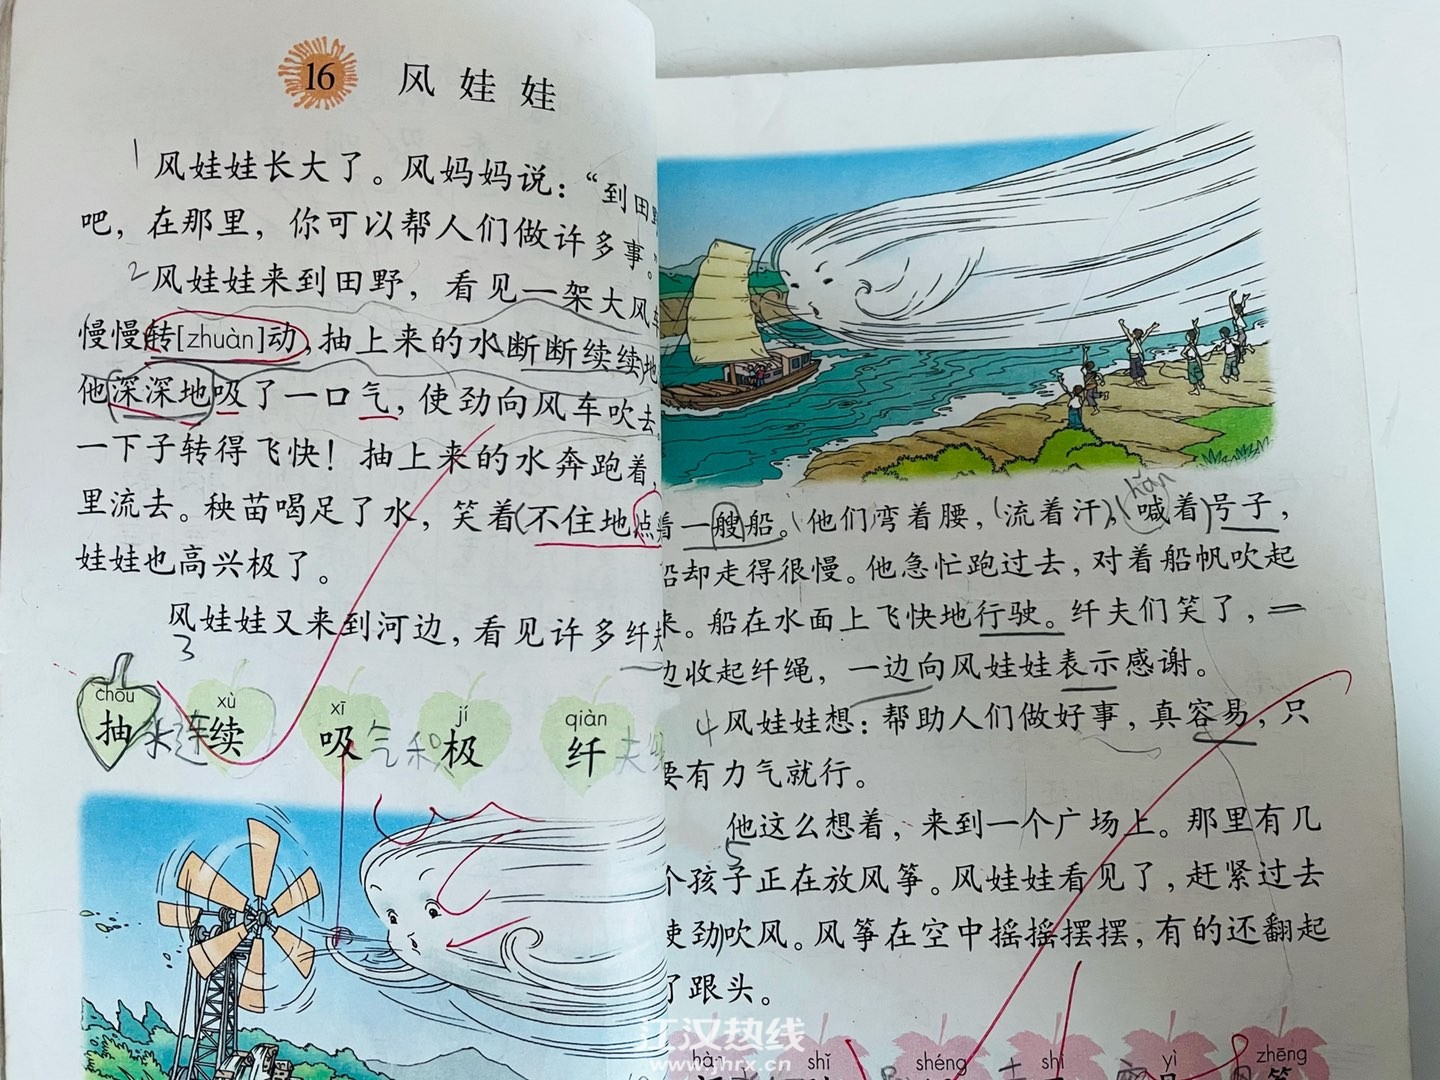 16 风娃娃
1 风娃娃长大了。风妈妈说：“到田野
吧，在那里，你可以帮人们做许多事。”
2 风娃娃来到田野，看见一架大风车
慢慢转[zhuàn]动，抽上来的水断断续续地
他深深地吸了一口气，使劲向风车吹去。
一下子转得飞快！抽上来的水奔跑着，
里流去。秧苗喝足了水，笑着(不住地点
娃娃也高兴极了。
风娃娃又来到河边，看见许多纤夫
3
chōu xù xī jí qiàn
抽水连续 吸气积极 纤夫
hǎn
着一艘船。他们弯着腰，(流着汗)，(喊着)号子，
船却走得很慢。他急忙跑过去，对着船帆吹起
来。船在水面上飞快地行驶。纤夫们笑了，一
边收起纤绳，一边向风娃娃表示感谢。
4 风娃娃想：帮助人们做好事，真容易，只
要有力气就行。
他这么想着，来到一个广场上。那里有几
5
个孩子正在放风筝。风娃娃看见了，赶紧过去
使劲吹风。风筝在空中摇摇摆摆，有的还翻起
了跟头。
hàn shǐ shéng shì yì zhēng
江汉热线
www.jhrx.cn